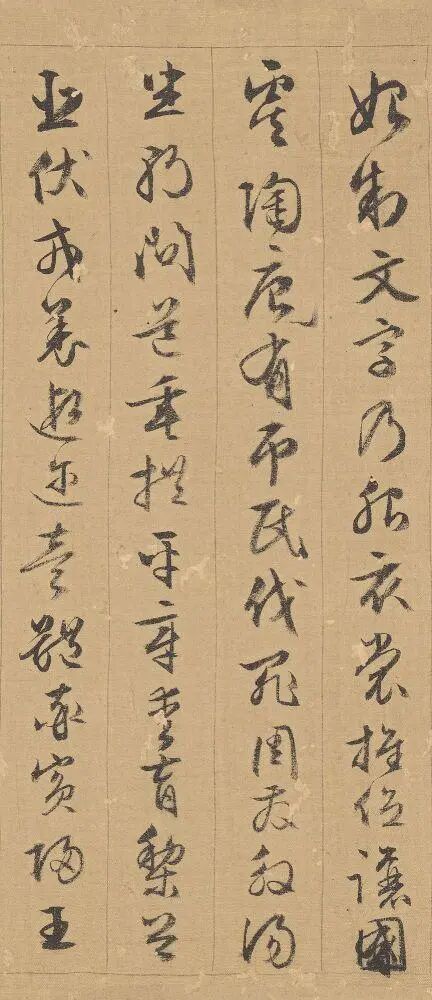 始制文字乃服衣裳推位讓國
虞陶唐有弔民伐罪周發殷湯
坐朝問道垂拱平章愛育黎首
臣伏戎羌遐邇壹體率賓歸王